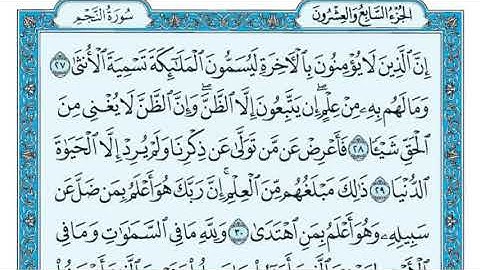 سُورَةُ النَّجْمِ
الجُزْءُ السَّابِعُ وَالعِشْرُونَ
إِنَّ ٱلَّذِينَ لَا يُؤْمِنُونَ بِٱلْـَٔاخِرَةِ لَيُسَمُّونَ ٱلْمَلَـٰٓئِكَةَ تَسْمِيَةَ ٱلْأُنثَىٰ ٢٧
وَمَا لَهُم بِهِۦ مِنْ عِلْمٍ ۖ إِن يَتَّبِعُونَ إِلَّا ٱلظَّنَّ ۖ وَإِنَّ ٱلظَّنَّ لَا يُغْنِى مِنَ
ٱلْحَقِّ شَيْـًٔا ٢٨ فَأَعْرِضْ عَن مَّن تَوَلَّىٰ عَن ذِكْرِنَا وَلَمْ يُرِدْ إِلَّا ٱلْحَيَوٰةَ
ٱلدُّنْيَا ٢٩ ذَٰلِكَ مَبْلَغُهُم مِّنَ ٱلْعِلْمِ ۚ إِنَّ رَبَّكَ هُوَ أَعْلَمُ بِمَن ضَلَّ عَن
سَبِيلِهِۦ وَهُوَ أَعْلَمُ بِمَنِ ٱهْتَدَىٰ ٣٠ وَلِلَّهِ مَا فِى ٱلسَّمَـٰوَٰتِ وَمَا فِى